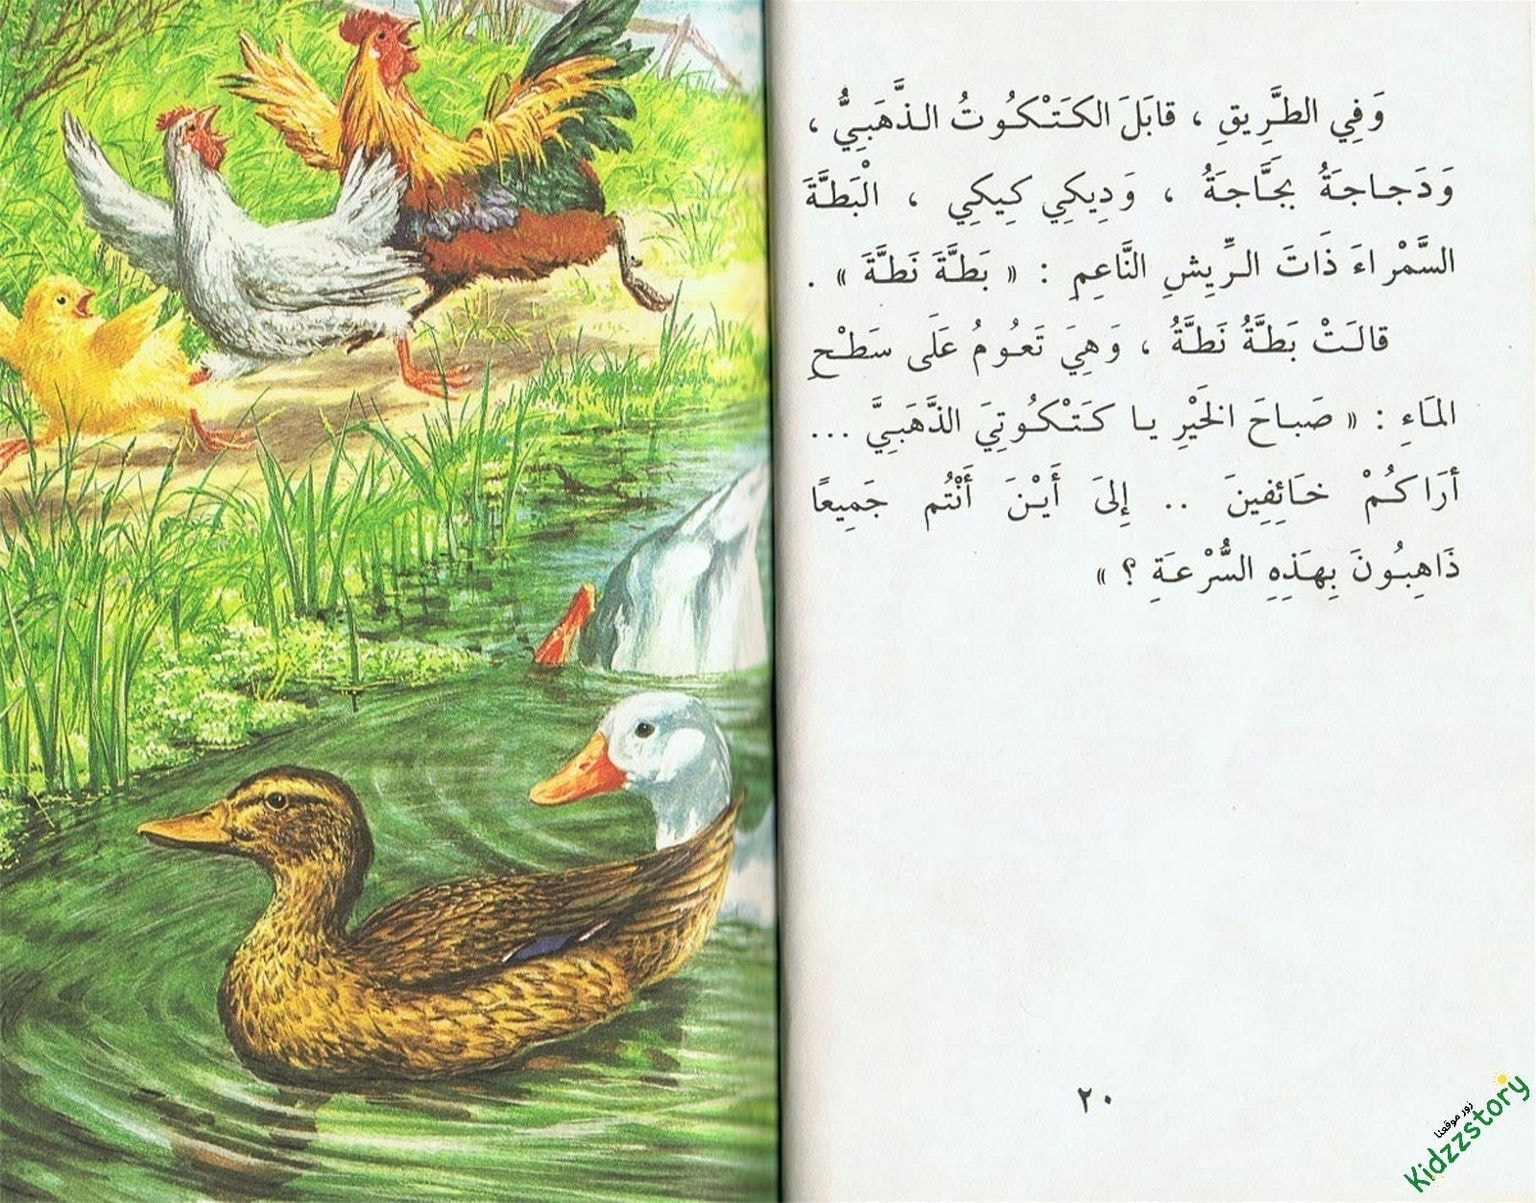 وَفِي الطَّرِيقِ ، قابَلَ الكَتْكُوتُ الذَّهَبِيُّ ،
وَدَجاجَةُ بَجَّاجَةُ ، وَدِيكِي كِيكِي ، الْبَطَّةَ
السَّمْراءَ ذَاتَ الرِّيشِ النَّاعِمِ : « بَطَّةَ نَطَّةَ » .
قالَتْ بَطَّةُ نَطَّةُ ، وَهِيَ تَعُومُ عَلَى سَطْحِ
المَاءِ : « صَباحَ الخَيْرِ يا كَتْكُوتِيَ الذَّهَبِيَّ ...
أرَاكُمْ خَائِفِينَ .. إِلىَ أَيْنَ أَنْتُم جَمِيعًا
ذَاهِبُونَ بِهَذِهِ السُّرْعَةِ ؟ »
٢٠
زور موقعنا
Kidzzstory